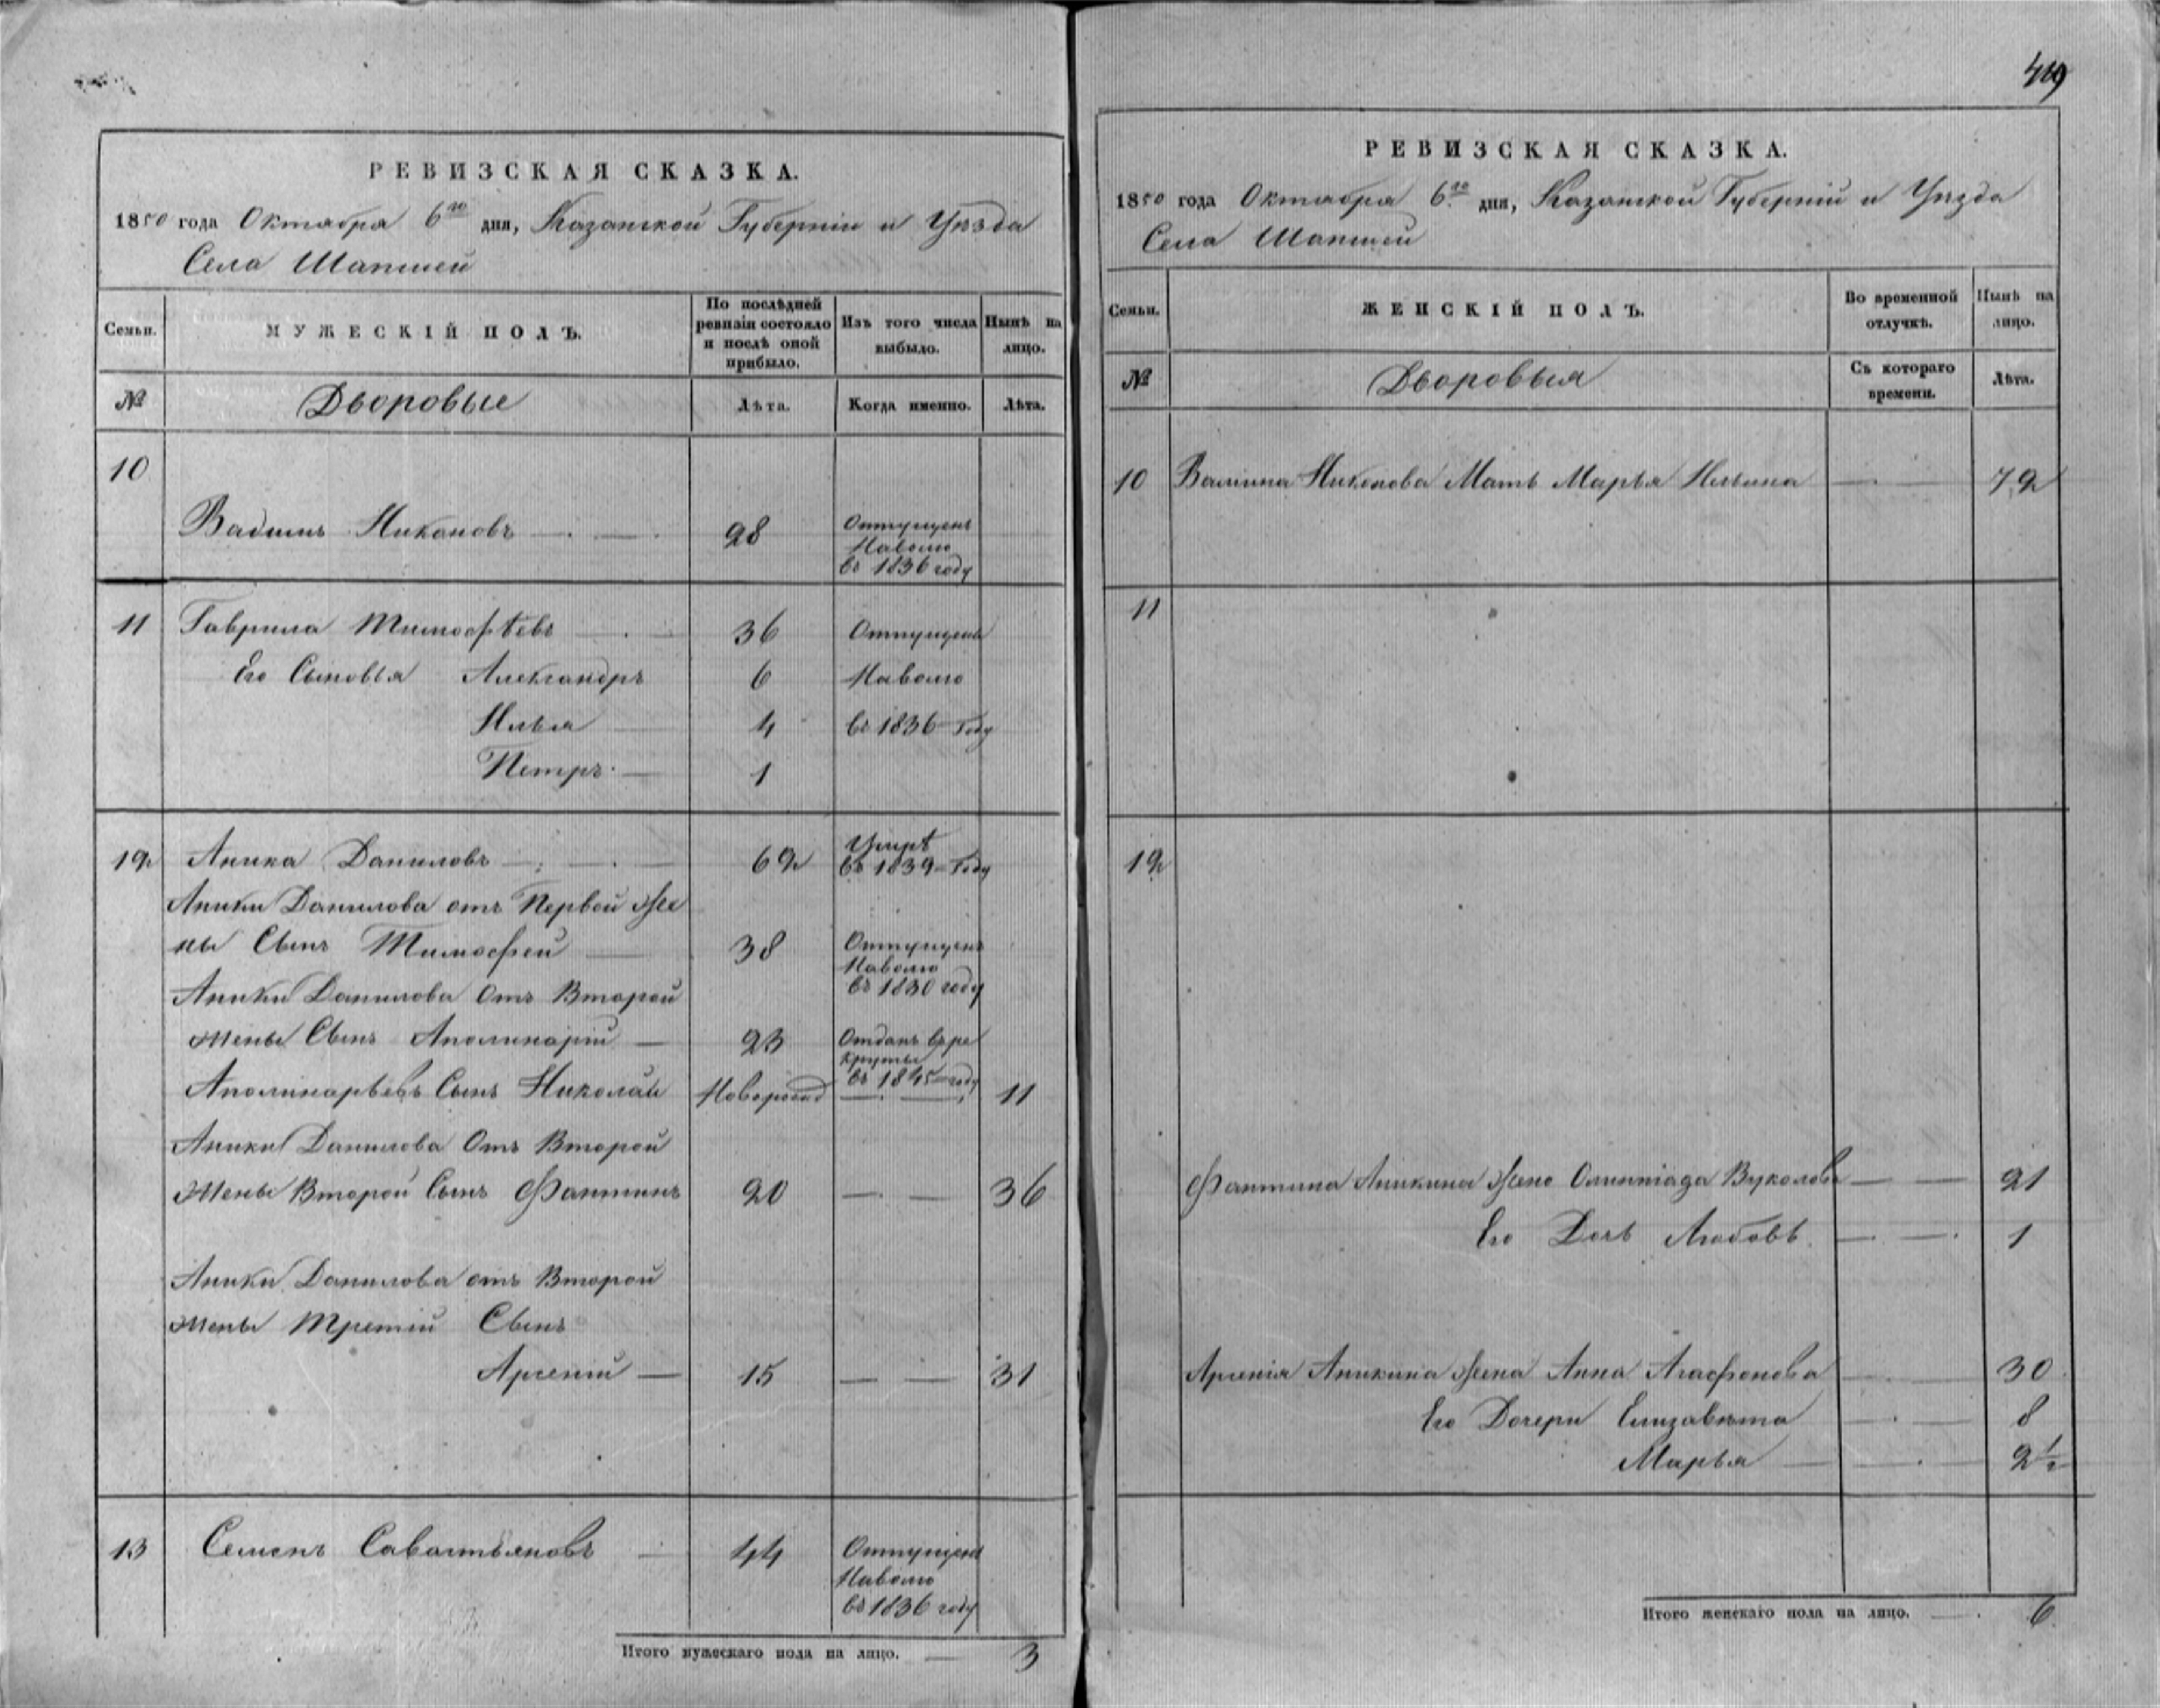 РЕВИЗСКАЯ СКАЗКА.
1850 года Октября 6го дня, Казанской Губерніи и Уѣзда
Села Шапшей
Семьи.
МУЖЕСКІЙ ПОЛЪ.
По послѣдней ревизіи состояло и послѣ оной прибыло.
Изъ того числа выбыло.
Нынѣ на лицо.
№
Дворовые
Лѣта.
Когда именно.
Лѣта.
10
Вадимъ Никоновъ 28 Отпущенъ
Наволю
въ 1836 году
11 Гаврила Тимофѣевъ 36 Отпущены
Его Сыновья Александръ 6 Наволю
Илья 4 въ 1836 Году
Петръ 1
12 Аника Даниловъ 62 Умерѣ
въ 1839 Году
Аники Данилова отъ Первой Же
ны Сынъ Тимофей 38 Отпущенъ
Наволю
въ 1830 году
Аники Данилова Отъ Второй
Жены Сынъ Аполинарій 23 Отданъ въ ре
круты
въ 1845 году
Аполинарьевъ Сынъ Николай Новорожд 11
Аники Данилова Отъ Второй
Жены Второй Сынъ Фантинъ 20 36
Аники Данилова отъ Второй
жены Третій Сынъ
Арсеній 15 31
13 Семенъ Савастьяновъ 44 Отпущенъ
Наволю
въ 1836 году
Итого мужескаго пола на лицо. 3
419
РЕВИЗСКАЯ СКАЗКА.
1850 года Октября 6го дня, Казанской Губерніи и Уѣзда
Села Шапшей
Семьи.
ЖЕНСКІЙ ПОЛЪ.
Во временной отлучкѣ.
Нынѣ на лицо.
№
Дворовыя
Съ котораго времени.
Лѣта.
10 Никонова Мать Марья Ильина 72
11
12
Фантина Аникина Жена Олимпіада Вуколова 21
Его Дочь Любовь 1
Арсенія Аникина Жена Анна Агафонова 30
Его Дочери Елизавѣта 8
Марья 2 1/2
Итого женскаго пола на лицо. 6